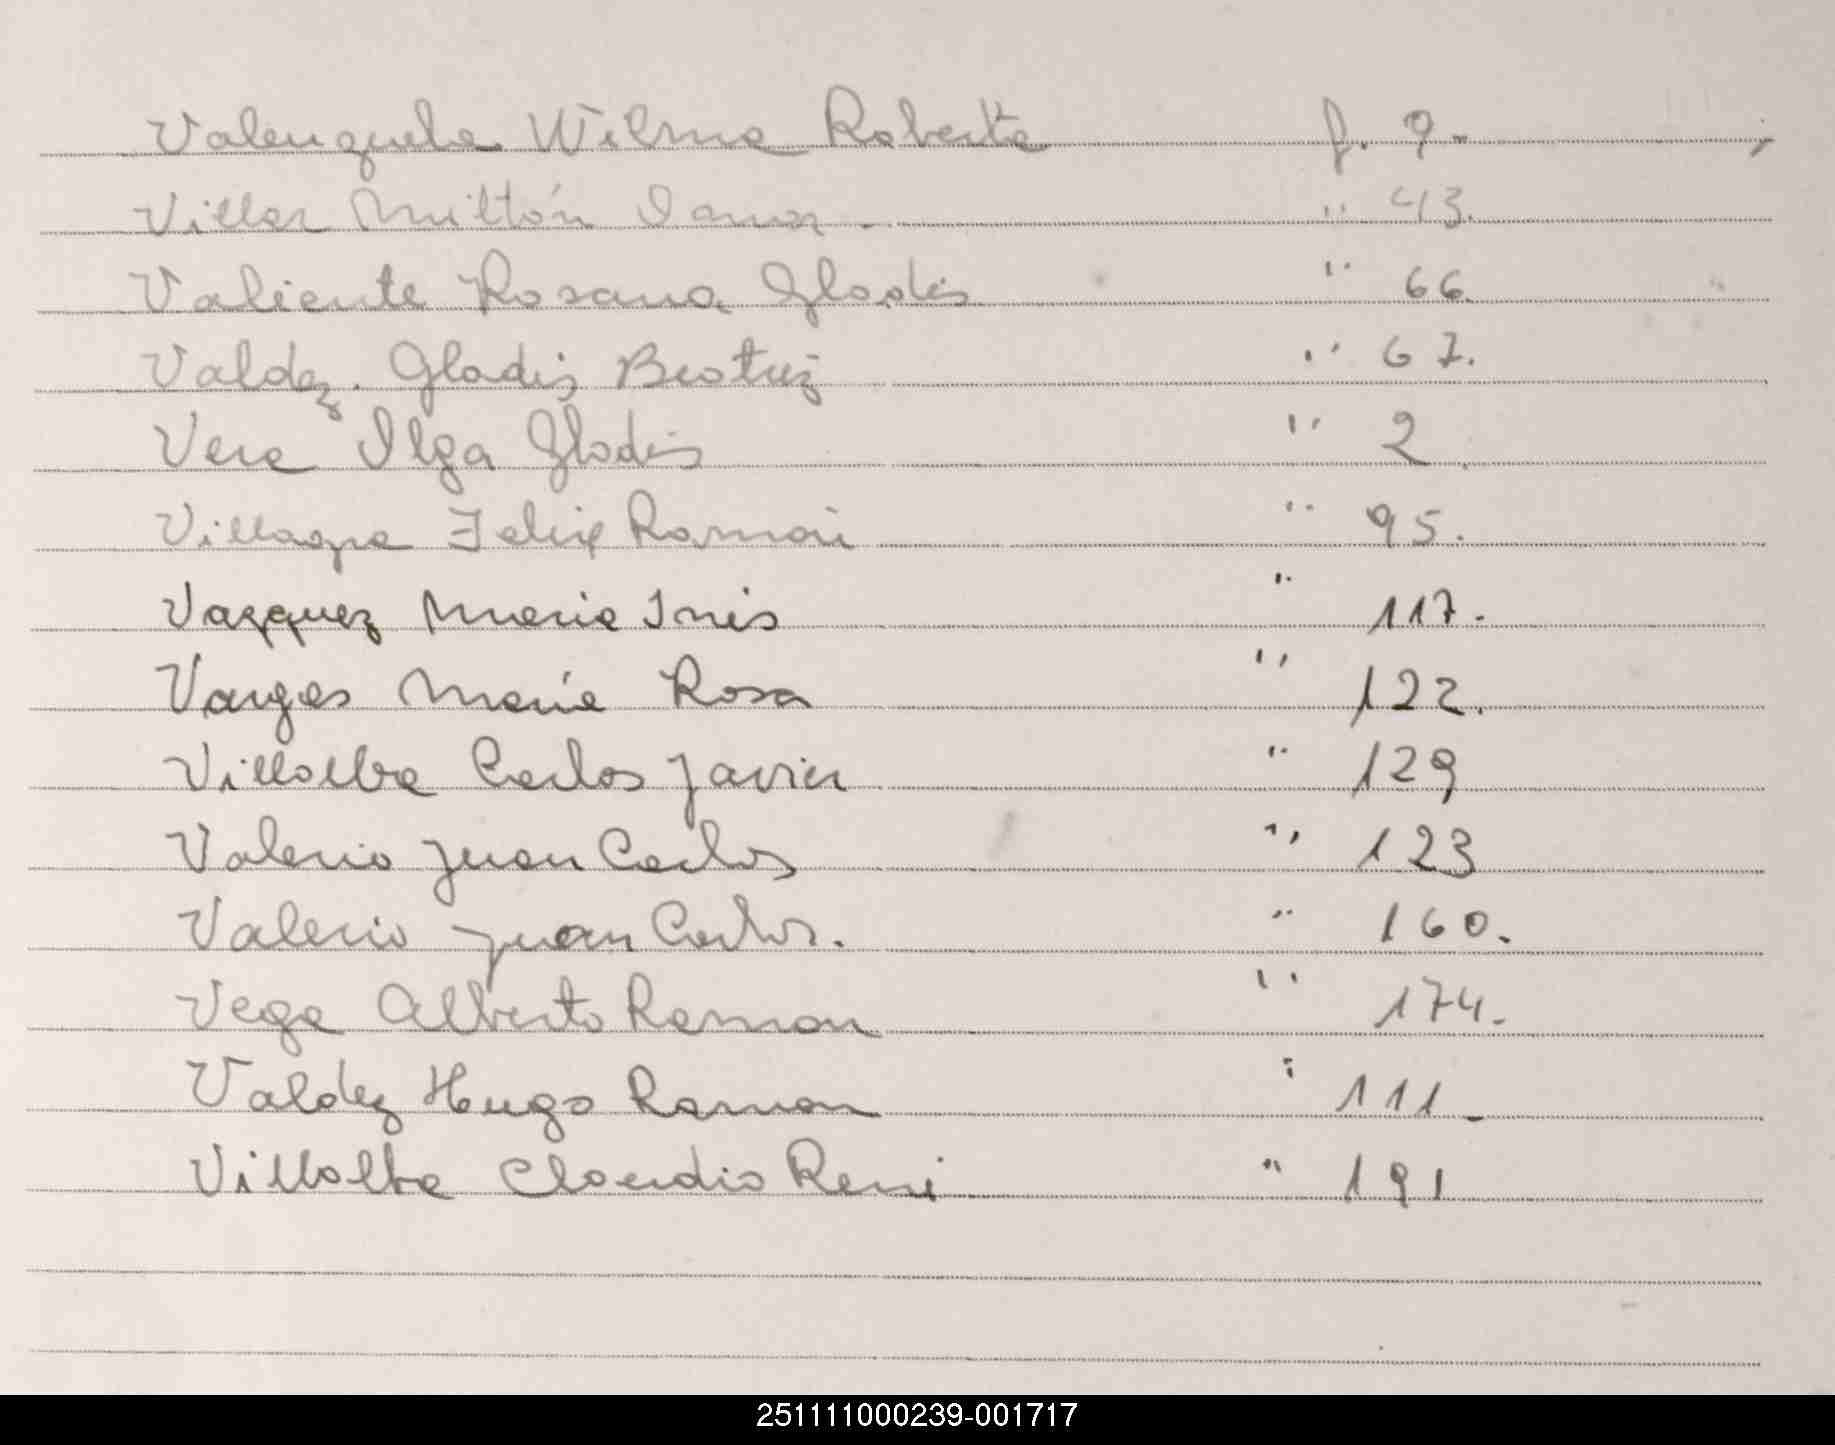 Valenzuela Wilma Roberta f. 9.-
Villar Miltón " 43.
Valiente Rosana Gladis " 66.
Valdez. Gladis Beatriz " 67.
Vera Ilga Gladis " 2.
Villagra Felix Ramón " 95.
Vazquez Maria Inés " 117.-
Vargas Maria Rosa " 122.
Villalba Carlos Javier " 129
Valerio Juan Carlos " 123
Valerio Juan Carlos. " 160.
Vega Alberto Ramon " 174.-
Valdez Hugo Ramon " 111.-
Villalba Claudio Rene " 191
251111000239-001717